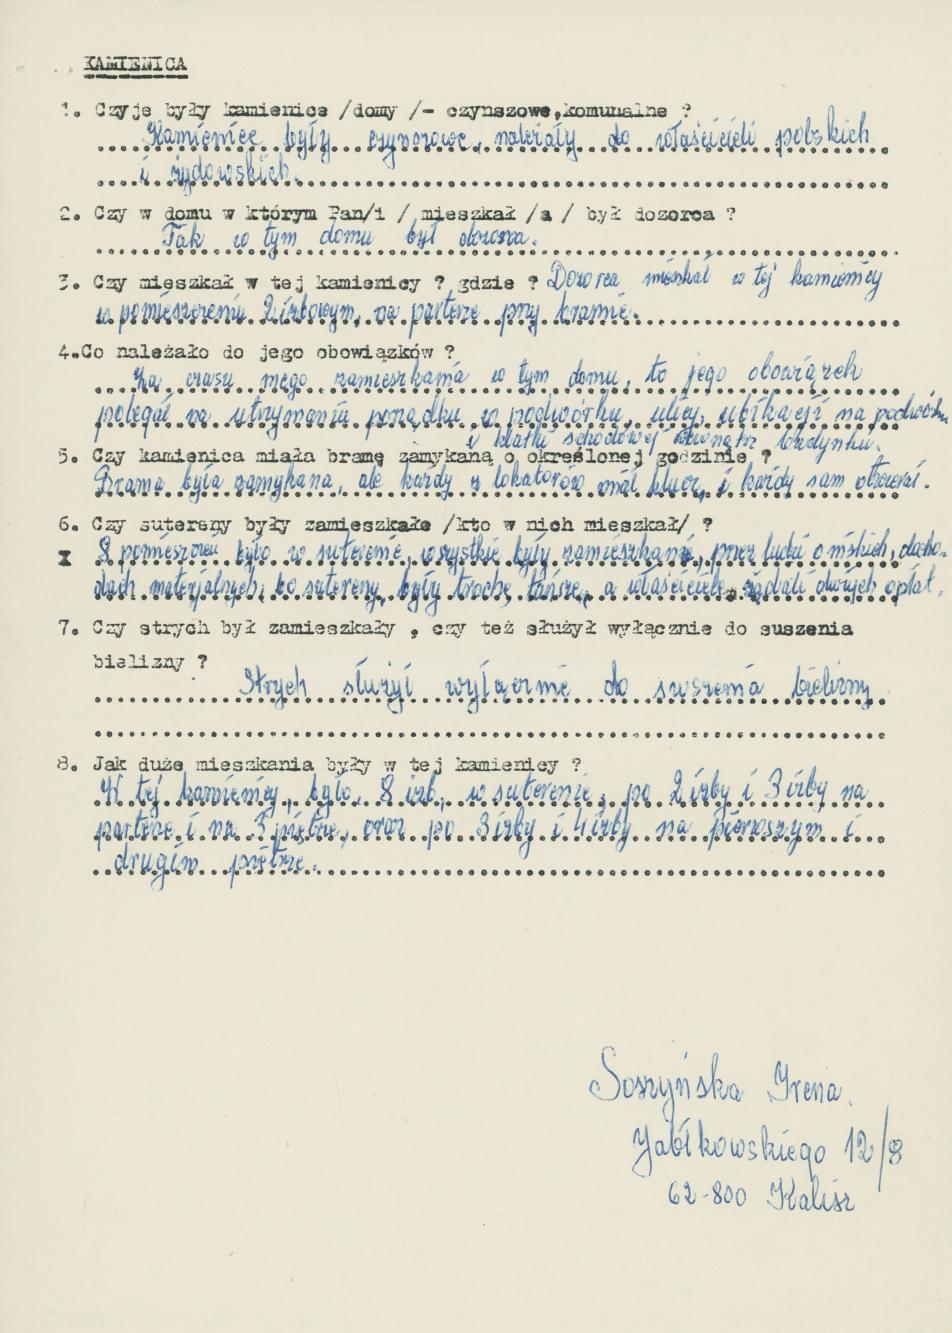 KAMIENICA
1. Czyje były kamienice /domy /- czynszowe,komunalne ?
Kamienice były czynszowe, należały do właścicieli polskich
i żydowskich.
2. Czy w domu w którym Pan/i / mieszkał /a / był dozorca ?
Tak w tym domu był dozorca.
3. Czy mieszkał w tej kamienicy ? gdzie ? Dozorca mieszkał w tej kamienicy
w pomieszczeniu 2 izbowym, na parterze przy bramie.
4.Co należało do jego obowiązków ?
Za czasu mego zamieszkania w tym domu, to jego obowiązek
polegał na utrzymaniu porządku w podwórku, ulicy, ubikacji na podwórku
i klatki schodowej wewnątrz budynku.
5. Czy kamienica miała bramę zamykaną o określonej godzinie ?
Brama była zamykana, ale każdy z lokatorów miał klucz, i każdy sam otwierał.
6. Czy sutereny były zamieszkałe /kto w nich mieszkał/ ?
8 pomieszczeń było w suterenie, wszystkie były zamieszkanie, przez ludzi o niskich, docho-
dach materjalnych, bo sutereny, były trochę tańsze, a właściciele żądali dużych opłat.
7. Czy strych był zamieszkały , czy też służył wyłącznie do suszenia
bielizny ?
Strych służył wyłącznie do suszenia bielizny
8. Jak duże mieszkania były w tej kamienicy ?
W tej kamienicy, było, 8 izb, w suterenie, po 2 izby i 3 izby na
parterze i na 3 piętrze, oraz po 3 izby i 4 izby na pierwszym i
drugim piętrze.
Soszyńska Irena.
Jabłkowskiego 12/8
62-800 Kalisz